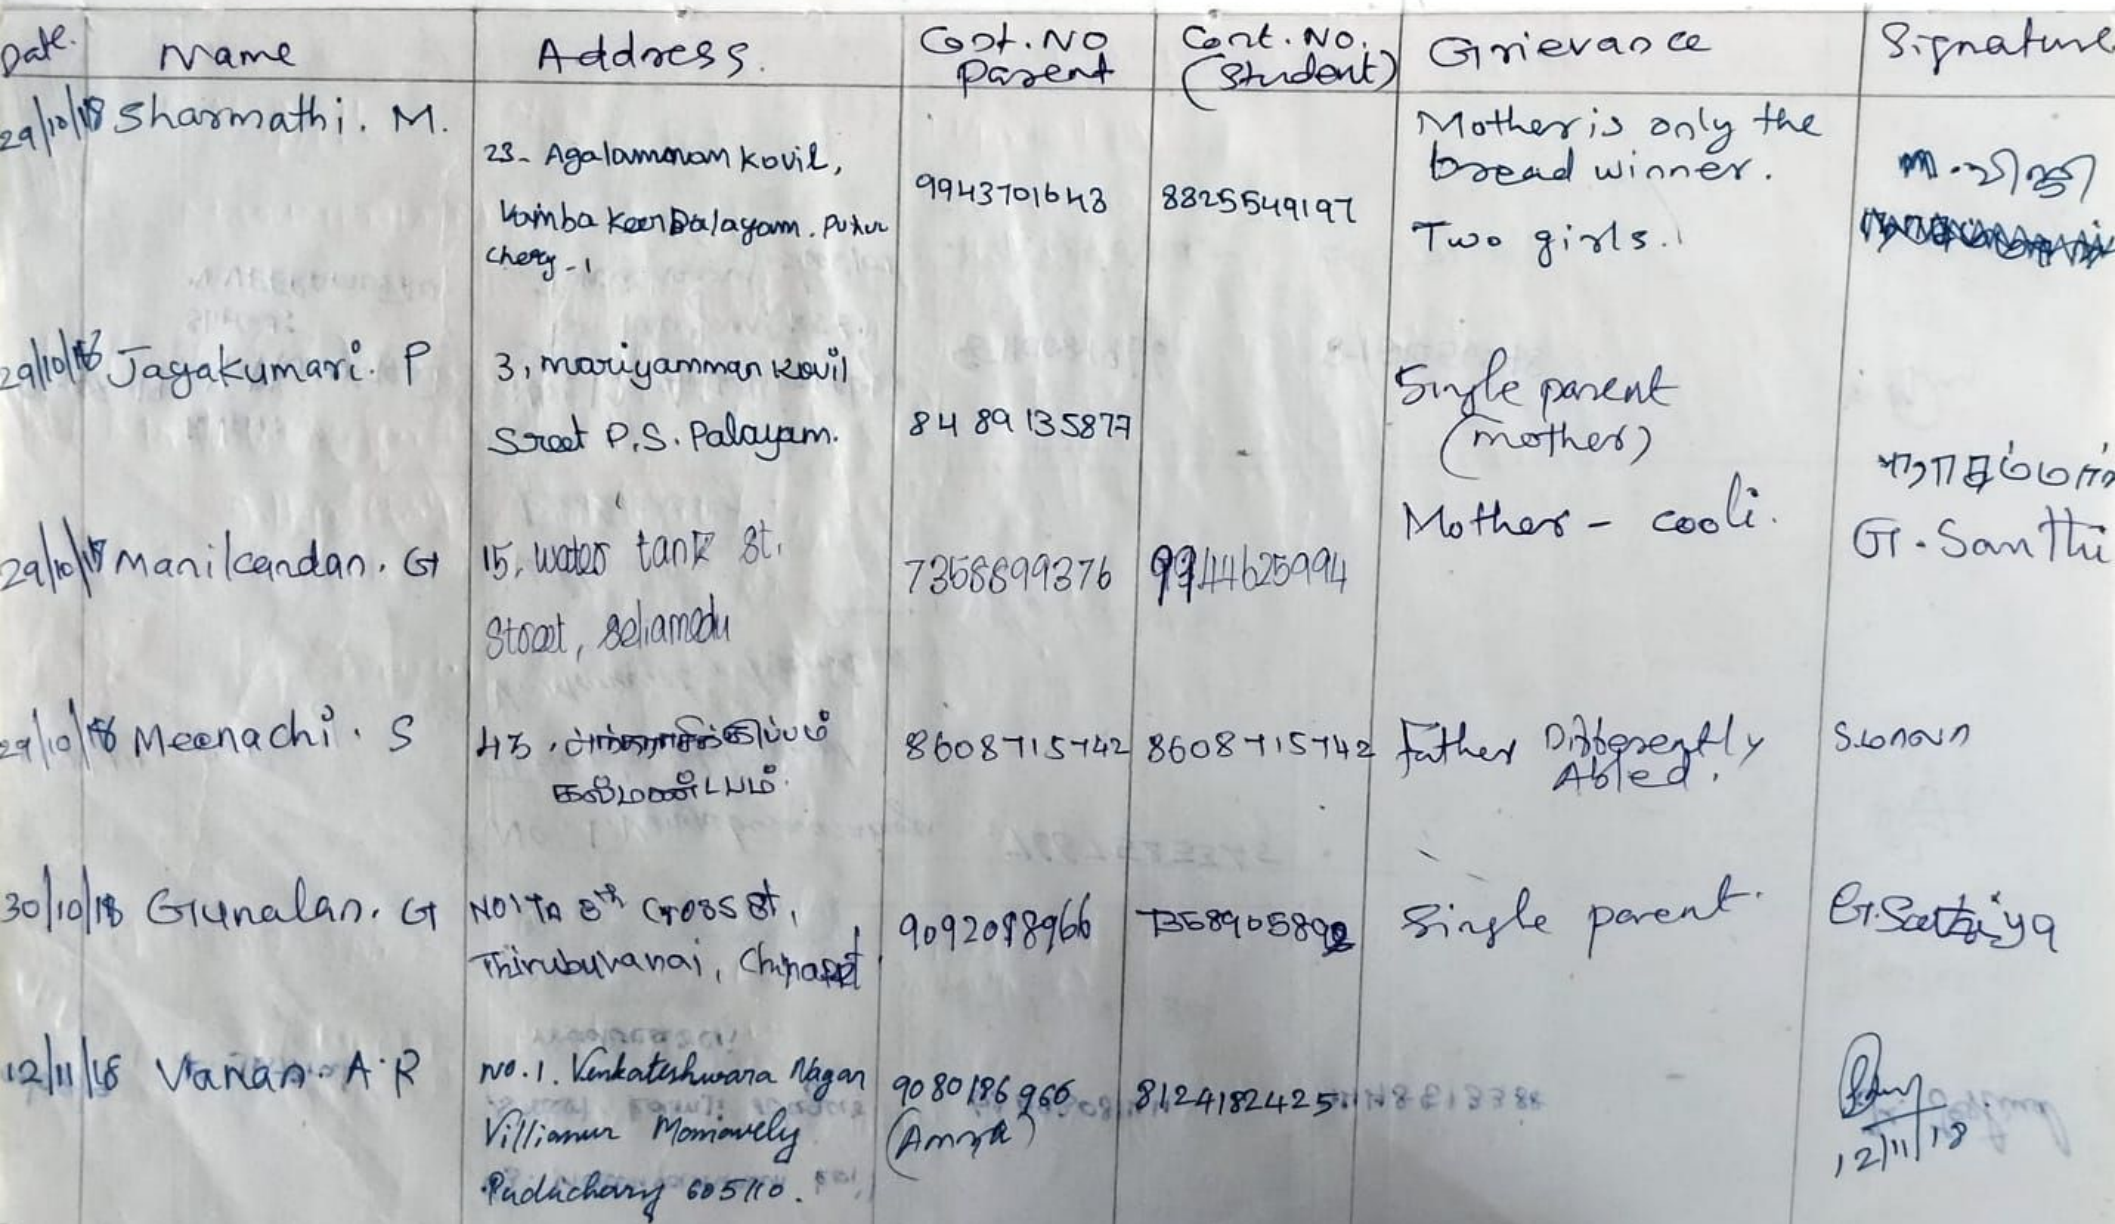 Date. Name Address. Cont. No Parent Cont. No. (Student) Grievance Signature
29/10/18 Sharmathi. M.
23- Agalamman Kovil,
Vamba Keera Palayam. Puthu
chery - 1
9943701643
8825549197
Mother is only the
bread winner.
Two girls.
29/10/18 Jayakumari. P
3, mariyamman Kovil
Sreet P.S. Palayam.
8489135877
Single parent
(mother)
29/10/18 Manikandan. G
15, water tank st,
Street, Seliamedu
7358899376
9944625994
Mother - cooli.
G. Santhi
29/10/18 Meenachi. S
43,
கல்மண்டபம்.
8608715742
8608715742
Father Differently
Abled.
S.மாலா
30/10/18 Gunalan. G
8th Cross st,
Thirubuvanai,
9092088966
Single parent.
G.Sathiya
12/11/18 Vanan. A. R
No. 1. Venkateshwara Nagar
Villianur Manavely
Puduchery 605110.
9080186966
8124182425
12/11/18